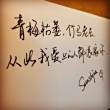 青梅枯萎,竹马老去
从此我爱上的人都像你